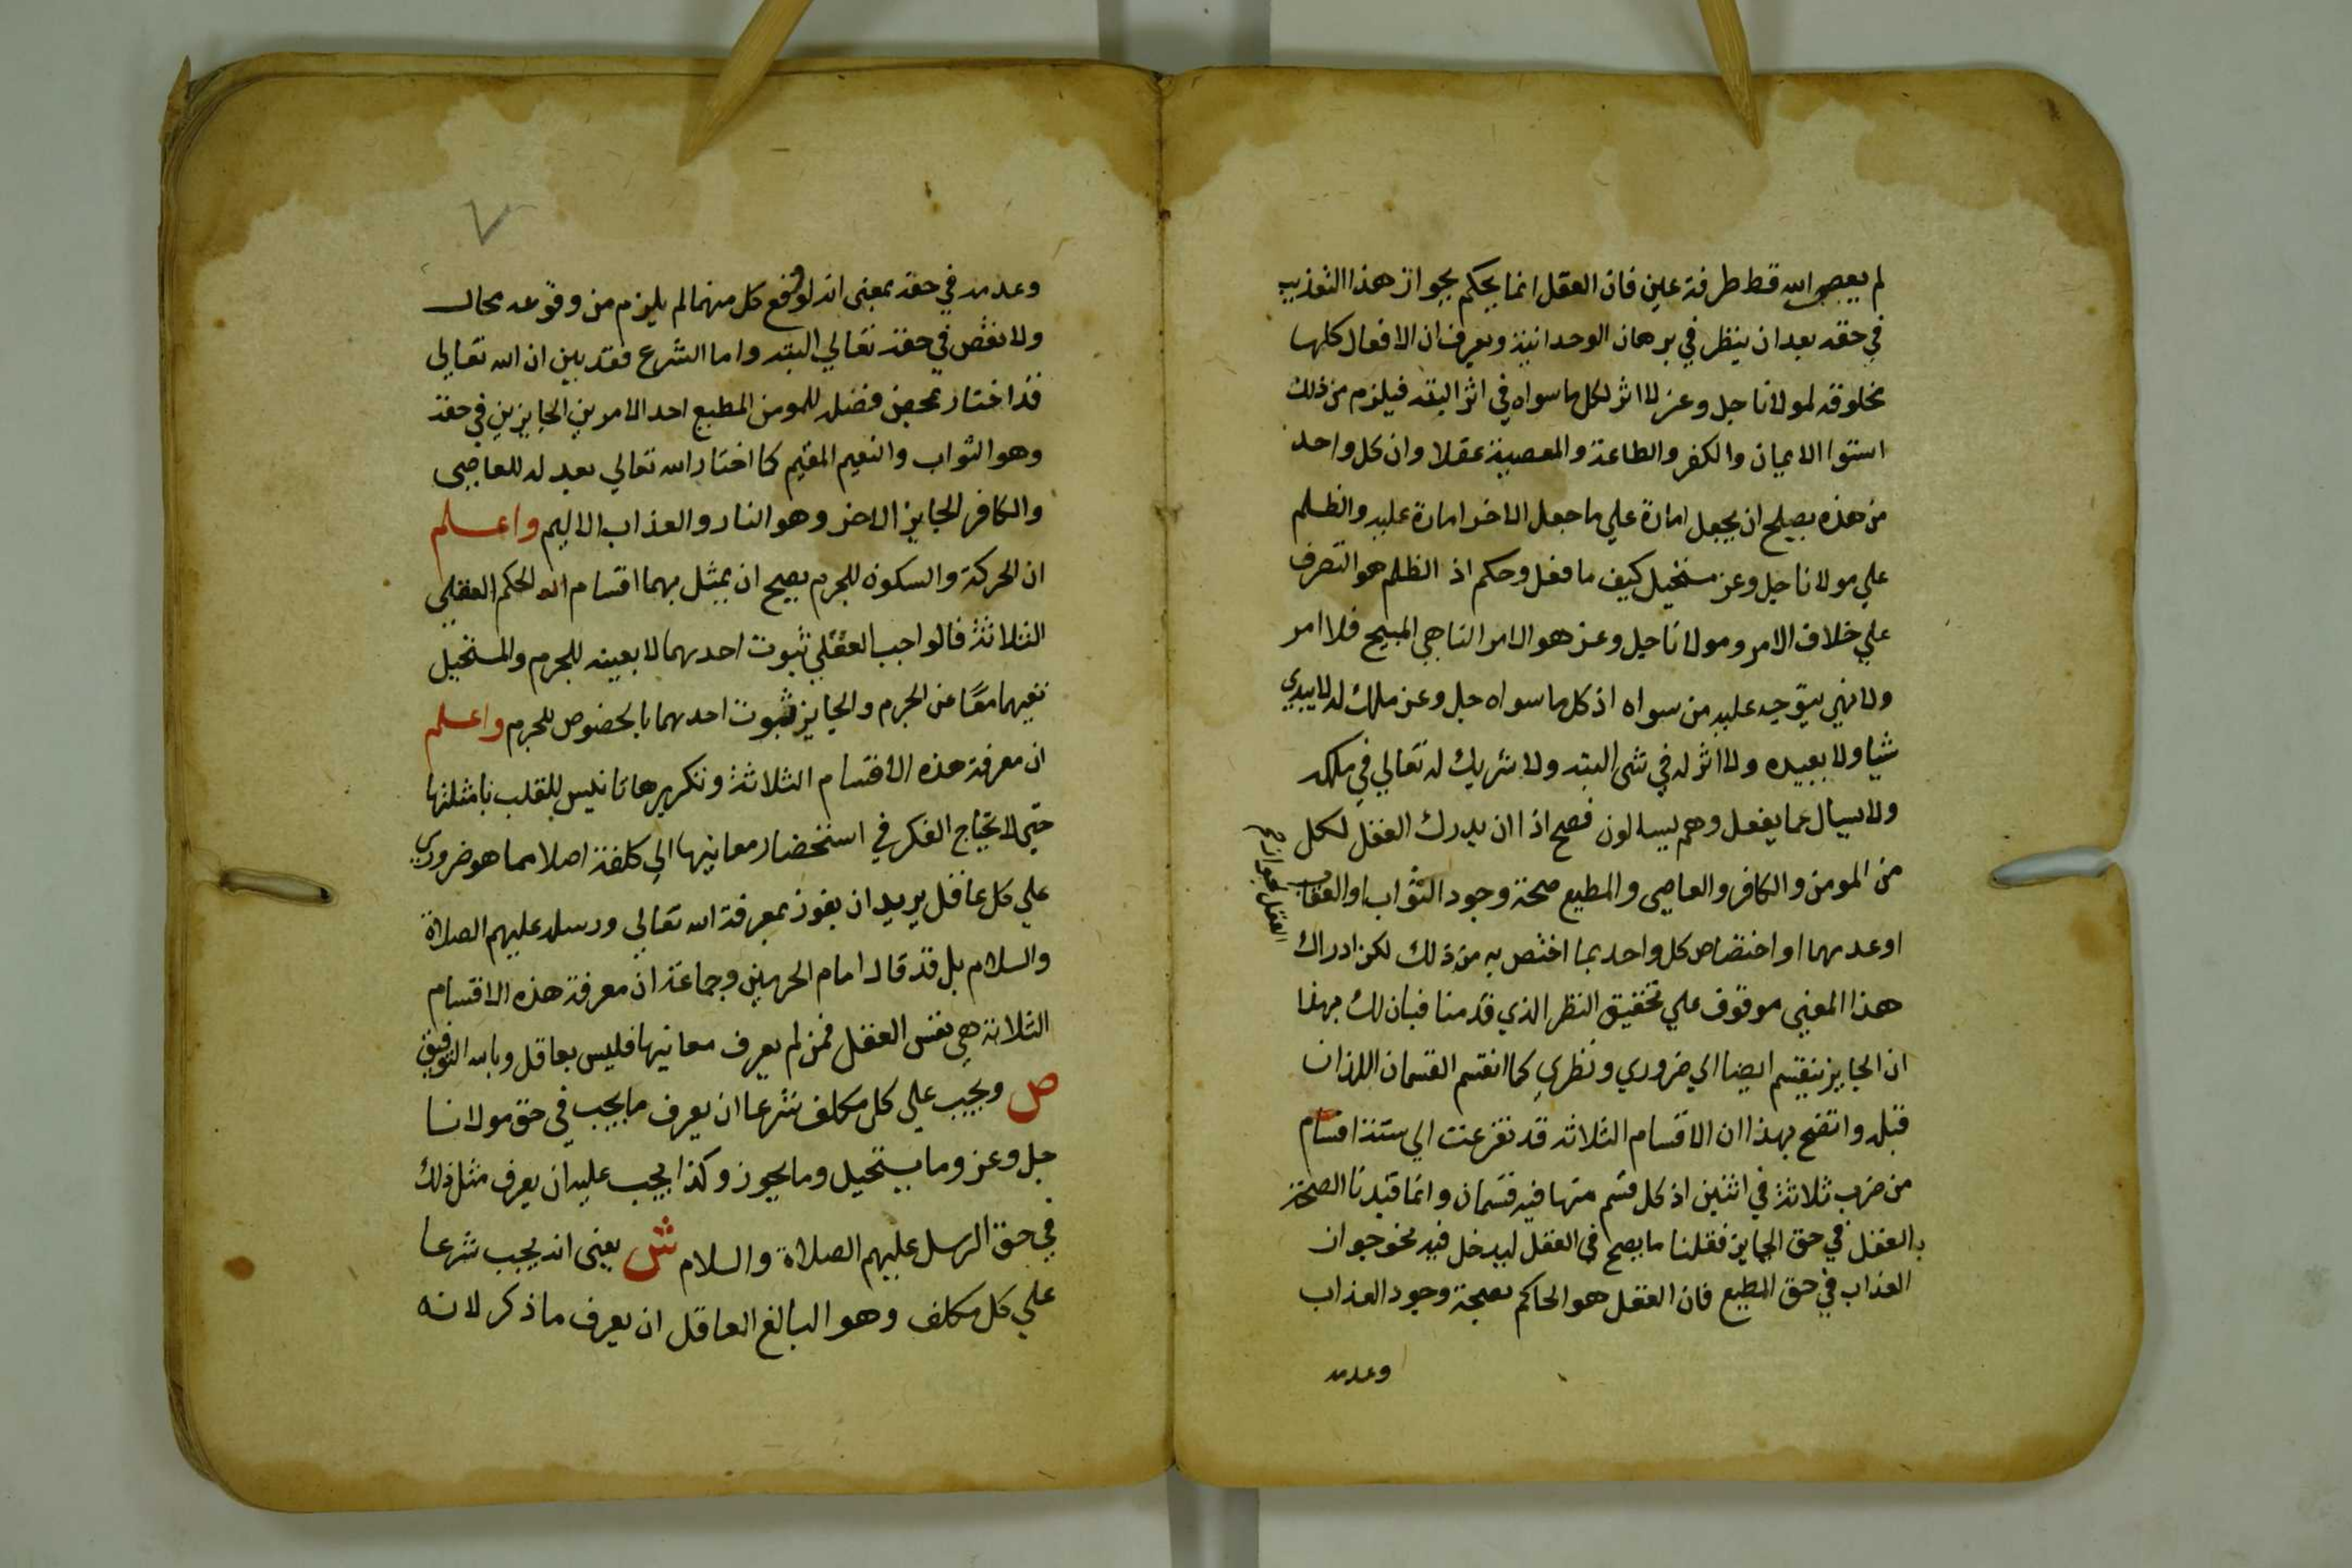 لم يعص الله قط طرفة عين فان العقل انما يحكم بجواز هذا التعذيب
في حقه بعد ان ينظر في برهان الوحدانية ويعرف ان الافعال كلها
مخلوقه لمولانا جل وعز لا اثر لكل ما سواه في اثر البته فيلزم من ذلك
استوا الايمان والكفر والطاعة والمعصية عقلا وان كل واحد
من هذه يصلح ان يجعل امارة علي ما جعل الاخر امارة عليه والظلم
علي مولانا جل وعز مستحيل كيف ما فعل وحكم اذ الظلم هو التصرف
علي خلاف الامر ومولانا جل وعز هو الامر الناهي المبيح فلا امر
ولا نهي يتوجه عليه من سواه اذ كل ما سواه جل وعز ملك له لا يبدي
شيا ولا يعيده ولا اثر له في شي البته ولا شريك له تعالي في ملكه
ولا يسال عما يفعل وهم يسالون فصح اذا ان يدرك العقل لكل
من المومن والكافر والعاصي والمطيع صحة وجود الثواب او العقاب
العقل جوازه
او عدمهما او اختصاص كل واحد بما اختص به من ذلك لكن ادراك
هذا المعني موقوف علي تحقيق النظر الذي قدمنا فبان لك بهذا
ان الجايز ينقسم ايضا الي ضروري ونظري كما انقسم القسمان اللذان
قبله واتضح بهذا ان الاقسام الثلاثه قد تفرعت الي ستة اقسام
من ضرب ثلاثة في اثنين اذ كل قسم منها فيه قسمان وانما قيدنا الصحة
بالعقل في حق الجايز فقلنا ما يصح في العقل ليدخل فيه نحو جواز
العذاب في حق المطيع فان العقل هو الحاكم بصحة وجود العذاب
وعدمه
٧
وعدمه في حقه بمعني انه لو وقع كل منهما لم يلزم من وقوعه محال
ولا نقص في حقه تعالي البته واما الشرع فقد بين ان الله تعالي
قد اختار بمحض فضله للمومن المطيع احد الامرين الجايزين في حقه
وهو الثواب والنعيم المقيم كما اختار الله تعالي بعدله للعاصي
والكافر الجايز الاخر وهو النار والعذاب الاليم واعلم
ان الحركة والسكون للجرم يصح ان يمثل بهما اقسام الحكم العقلي
الثلاثة فالواجب العقلي ثبوت احدهما لا بعينه للجرم والمستحيل
نفيهما معًا عن الجرم والجايز ثبوت احدهما بالخصوص للجرم واعلم
ان معرفة هذه الاقسام الثلاثة وتكريرها تانيس للقلب بامثلتها
حتي لا يحتاج الفكر في استحضار معانيها الي كلفة اصلا مما هو ضروري
علي كل عاقل يريد ان يفوز بمعرفة الله تعالي ورسله عليهم الصلاة
والسلام بل قد قال امام الحرمين وجماعة ان معرفة هذه الاقسام
الثلاثة هي نفس العقل فمن لم يعرف معانيها فليس بعاقل وبالله التوفيق
ص ويجب علي كل مكلف شرعا ان يعرف ما يجب في حق مولانا
جل وعز وما يستحيل وما يجوز وكذا يجب عليه ان يعرف مثل ذلك
في حق الرسل عليهم الصلاة والسلام ش يعني انه يجب شرعا
علي كل مكلف وهو البالغ العاقل ان يعرف ما ذكر لانه